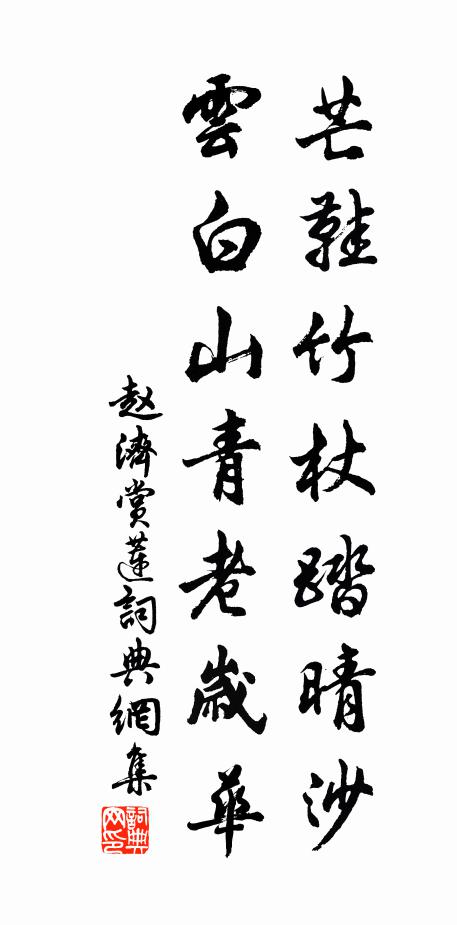 芒鞋竹杖踏晴沙
雲白山青老歲華
赵濟賞蓮詞典網集
詞典
网印